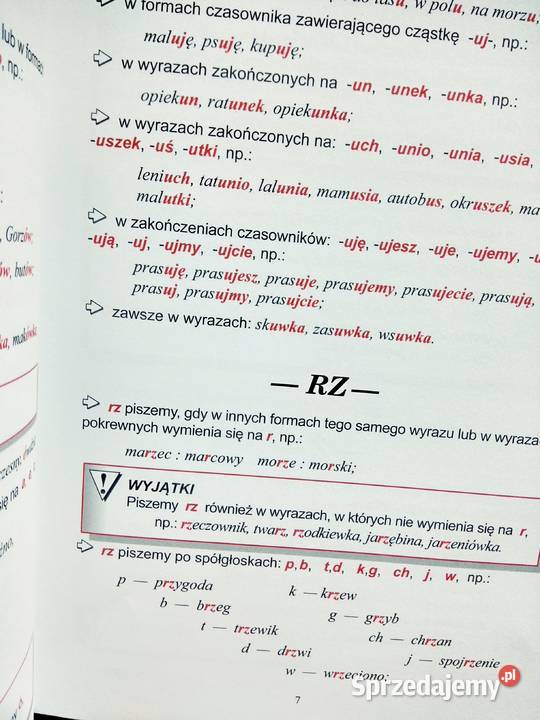 w polu, na morzu,
w formach czasownika zawierającego cząstkę -uj-, np.:
maluję, psuję, kupuję;
w wyrazach zakończonych na -un, -unek, -unka, np.:
opiekun, ratunek, opiekunka;
w wyrazach zakończonych na: -uch, -unio, -unia, -usia,
-uszek, -uś, -utki, np.:
leniuch, tatunio, lalunia, mamusia, autobus, okruszek,
malutki;
w zakończeniach czasowników: -uję, -ujesz, -uje, -ujemy,
-ują, -uj, -ujmy, -ujcie, np.:
prasuję, prasujesz, prasuje, prasujemy, prasujecie, prasują,
prasuj, prasujmy, prasujcie;
zawsze w wyrazach: skuwka, zasuwka, wsuwka.
— RZ —
rz piszemy, gdy w innych formach tego samego wyrazu lub w
pokrewnych wymienia się na r, np.:
marzec : marcowy morze : morski;
WYJĄTKI
Piszemy rz również w wyrazach, w których nie wymienia się na r,
np.: rzeczownik, twarz, rzodkiewka, jarzębina, jarzeniówka.
rz piszemy po spółgłoskach: p,b, t,d, k,g, ch, j, w, np.:
p — przygoda k — krzew
b — brzeg g — grzyb
t — trzewik ch — chrzan
d — drzwi j — spojrzenie
w — wrzeciono;
7
lub w formach
np.:
Gorzów;
Sprzedajemy.pl